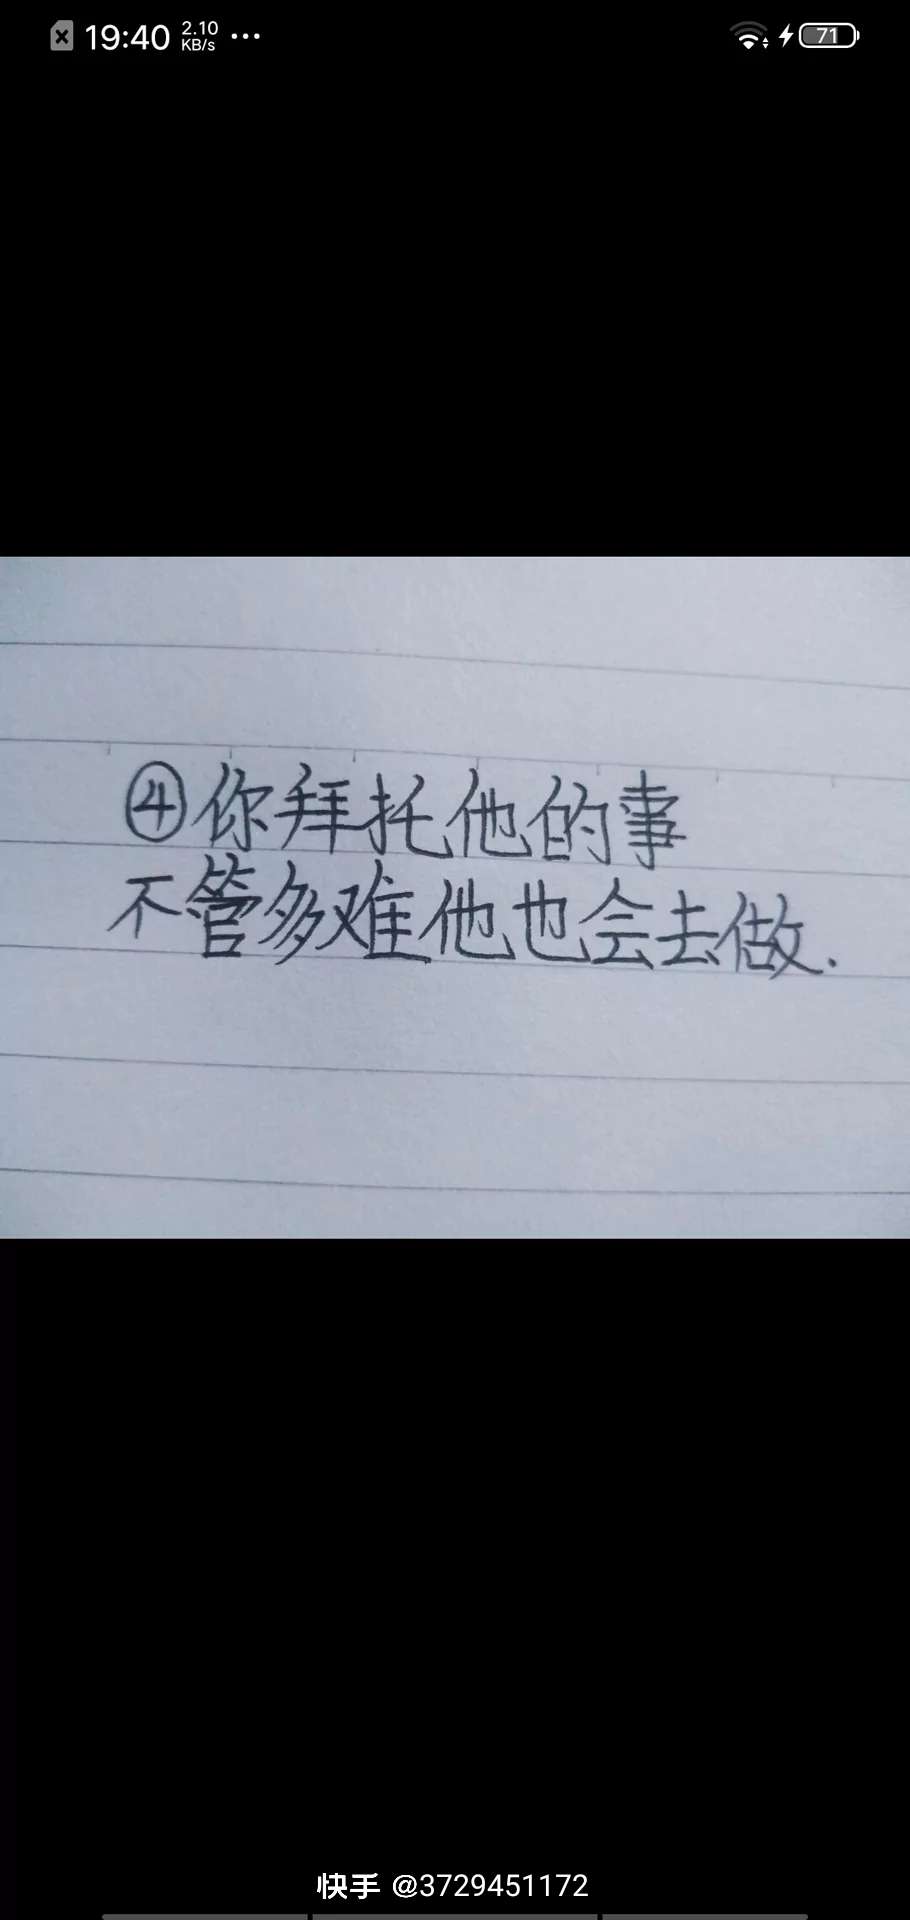 19:40 2.10 KB/s ... 71
④你拜托他的事
不管多难他也会去做.
快手 @3729451172